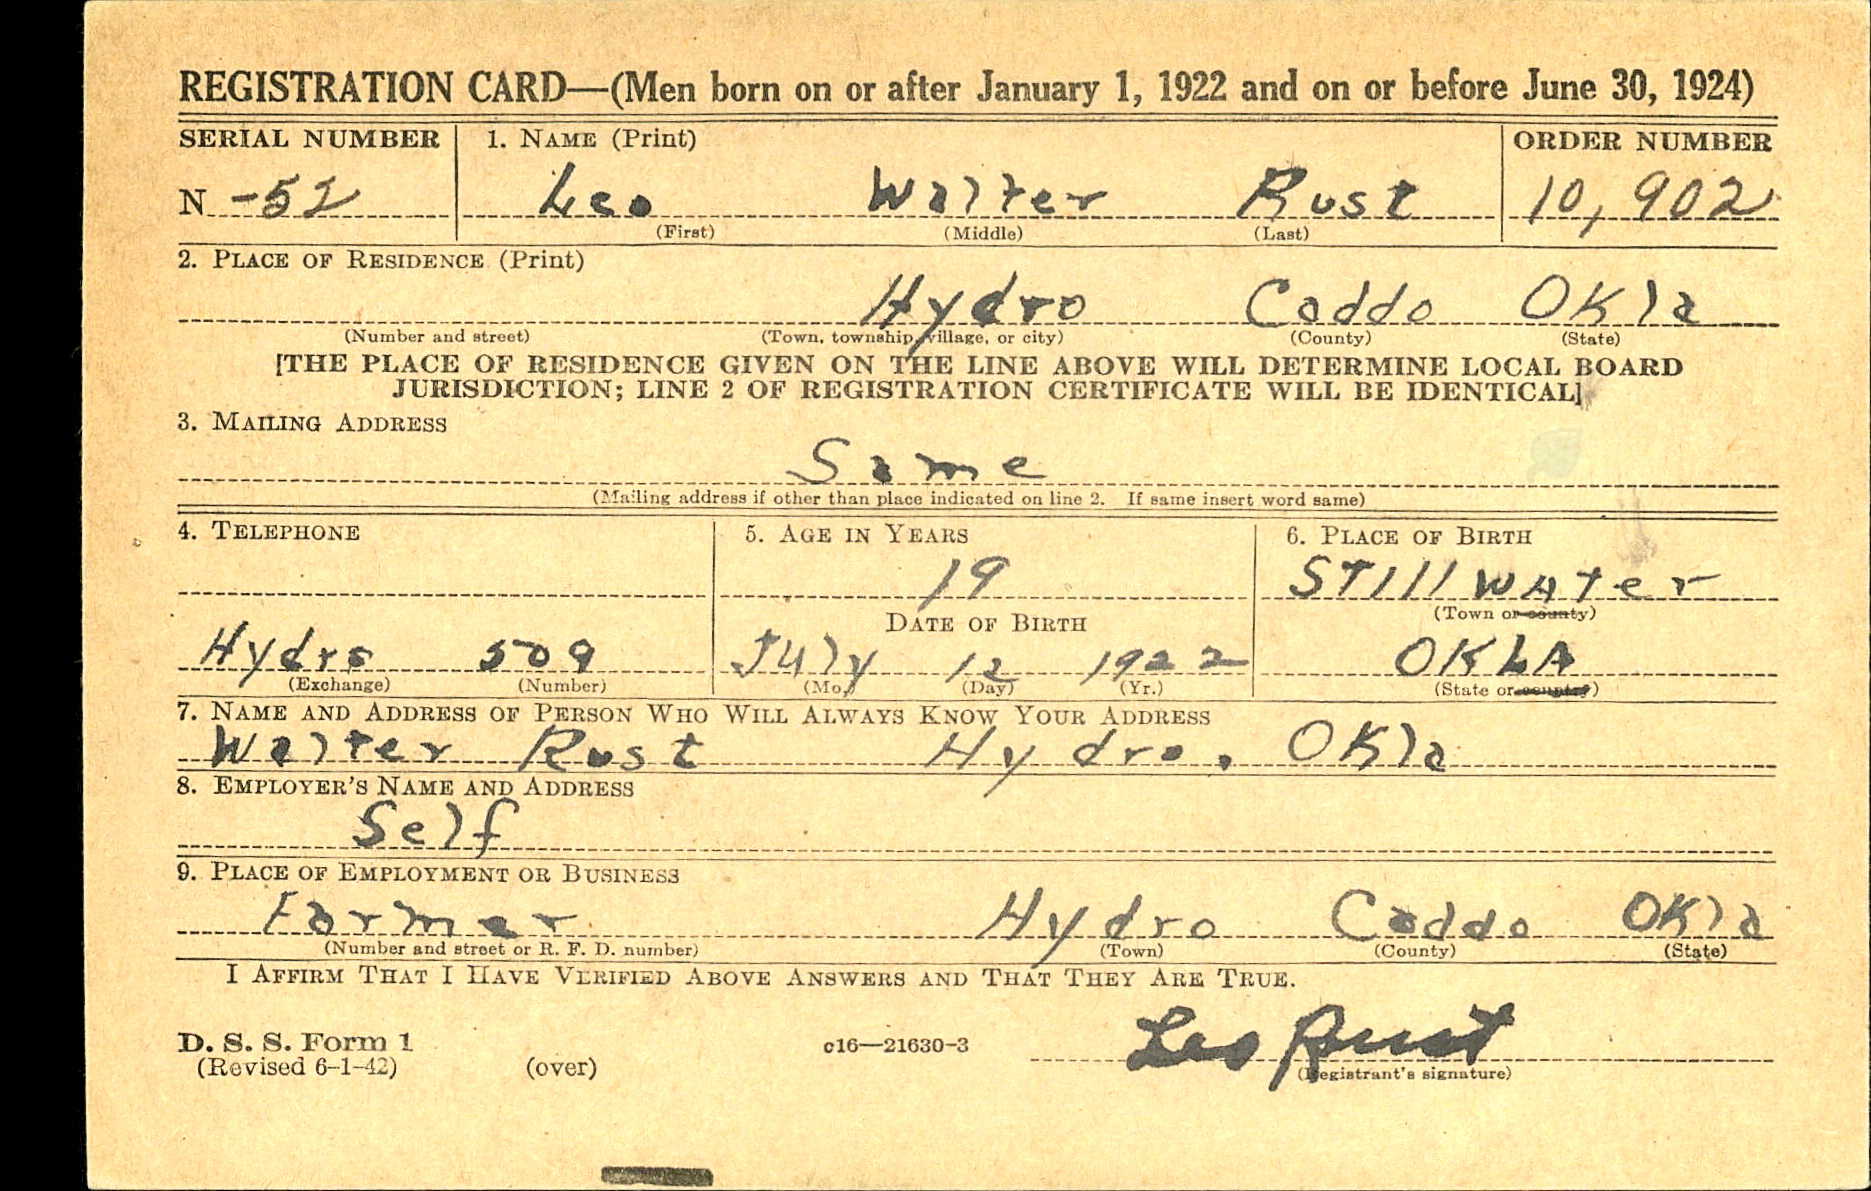 REGISTRATION CARD—(Men born on or after January 1, 1922 and on or before June 30, 1924)
SERIAL NUMBER 1. NAME (Print) ORDER NUMBER
N -52 Leo Walter Rust 10,902
(First) (Middle) (Last)
2. PLACE OF RESIDENCE (Print)
Hydro Caddo Okla
(Number and street) (Town, township, village, or city) (County) (State)
[THE PLACE OF RESIDENCE GIVEN ON THE LINE ABOVE WILL DETERMINE LOCAL BOARD
JURISDICTION; LINE 2 OF REGISTRATION CERTIFICATE WILL BE IDENTICAL]
3. MAILING ADDRESS
Same
(Mailing address if other than place indicated on line 2. If same insert word same)
4. TELEPHONE 5. AGE IN YEARS 6. PLACE OF BIRTH
19 STillWATer
(Town or county)
DATE OF BIRTH
Hydro 509 July 12 1922 OKLA
(Exchange) (Number) (Mo.) (Day) (Yr.) (State or country)
7. NAME AND ADDRESS OF PERSON WHO WILL ALWAYS KNOW YOUR ADDRESS
Walter Rust Hydro, Okla
8. EMPLOYER'S NAME AND ADDRESS
Self
9. PLACE OF EMPLOYMENT OR BUSINESS
Farmer Hydro Caddo Okla
(Number and street or R. F. D. number) (Town) (County) (State)
I AFFIRM THAT I HAVE VERIFIED ABOVE ANSWERS AND THAT THEY ARE TRUE.
D. S. S. Form 1
(Revised 6-1-42) (over) c16—21630-3 Leo Rust
(Registrant's signature)